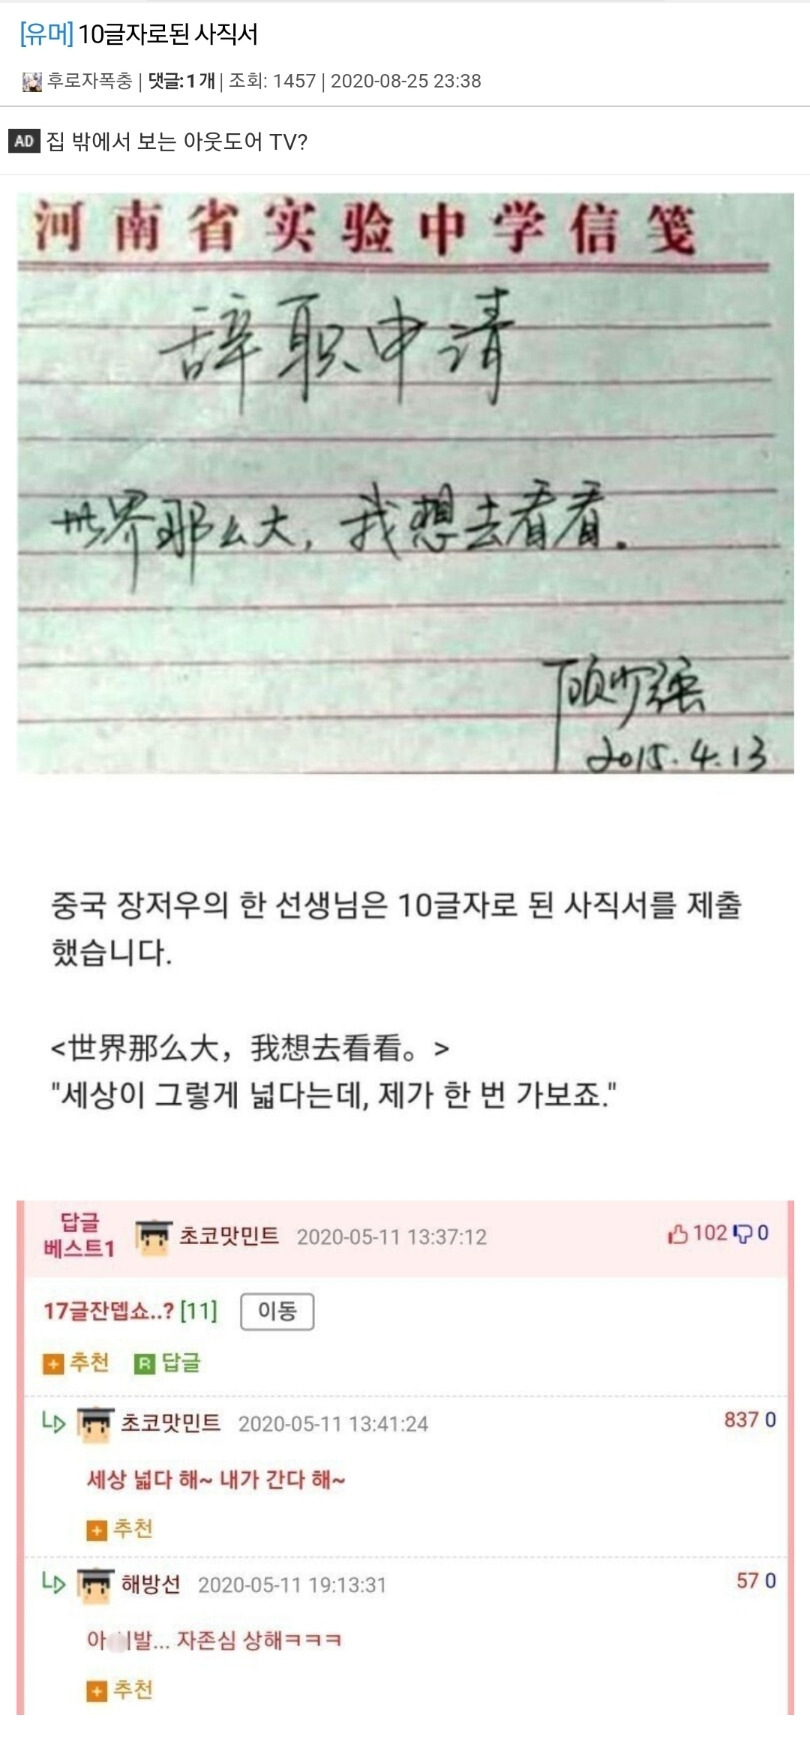 [유머] 10글자로된 사직서
후로자폭충 | 댓글: 1개 | 조회: 1457 | 2020-08-25 23:38
AD 집 밖에서 보는 아웃도어 TV?
河南省实验中学信笺
辞职申请
世界那么大，我想去看看.
顾少强
2015.4.13
중국 장저우의 한 선생님은 10글자로 된 사직서를 제출
했습니다.
<世界那么大，我想去看看。>
"세상이 그렇게 넓다는데, 제가 한 번 가보죠."
답글
베스트1
초코맛민트 2020-05-11 13:37:12 102 0
17글잔뎁쇼..? [11] 이동
+ 추천 R 답글
초코맛민트 2020-05-11 13:41:24 837 0
세상 넓다 해~ 내가 간다 해~
+ 추천
해방선 2020-05-11 19:13:31 57 0
아 발... 자존심 상해ㅋㅋㅋ
+ 추천